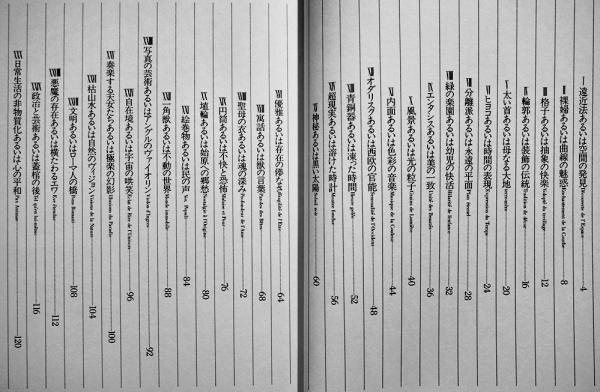 I 遠近法あるいは空間の発見 Découverte de l'Espace 4
II 裸婦あるいは曲線の魅惑 Enchantement de la Courbe 8
III 格子あるいは抽象の快楽 12
輪郭あるいは装飾の伝統 Tradition de décor 16
V 太い首あるいは母なる大地 20
あるいは時間の表現 Expression de Temps 24
分離派あるいは永遠の平面 Plan éternel 28
緑の楽園あるいは幼児の快活 32
エンタシスあるいは葦の一致 36
X 風景あるいは光の粒子 Grains de Lumière 40
内面あるいは色彩の音楽 Musique de la Couleur 44
オダリスクあるいは西欧の官能 Sensualité de l'Occident 48
青銅器あるいは凍った時間 52
超現実あるいは溶けた時計 Montre fondue 56
神秘あるいは黒い太陽 Soleil noir 60
優雅あるいは存在の儚さ Fragilité de l'Etre 64
寓話あるいは獣の言葉 Paroles des Bêtes 68
聖母の衣あるいは魂の深み Profondeur de l'Ame 72
円筒あるいは不快と恐怖 Malaise et Peur 76
埴輪あるいは始原への郷愁 Nostalgie à l'Origine 80
絵巻物あるいは民の声 Vox Populi 84
一角獣あるいは不動の世界 Monde immobile 88
写真の芸術あるいはアングルのヴァイオリン Violon d'Ingres 92
自在境あるいは宇宙の哄笑 Eclat de Rire de l'Univers 96
奏楽する天女たちあるいは極楽の幻影 Illusion du Paradis 100
枯山水あるいは自然のヴィジョン Vision de la Nature 104
文明あるいはローマ人の橋 Pons Romani 108
悪魔の存在あるいは横たわるエヴァ Eve étendue 112
政治と芸術あるいは蓋棺の後 Tel qu'en lui-même 116
日常生活の非物質化あるいは心の平和 Pax Animae 120